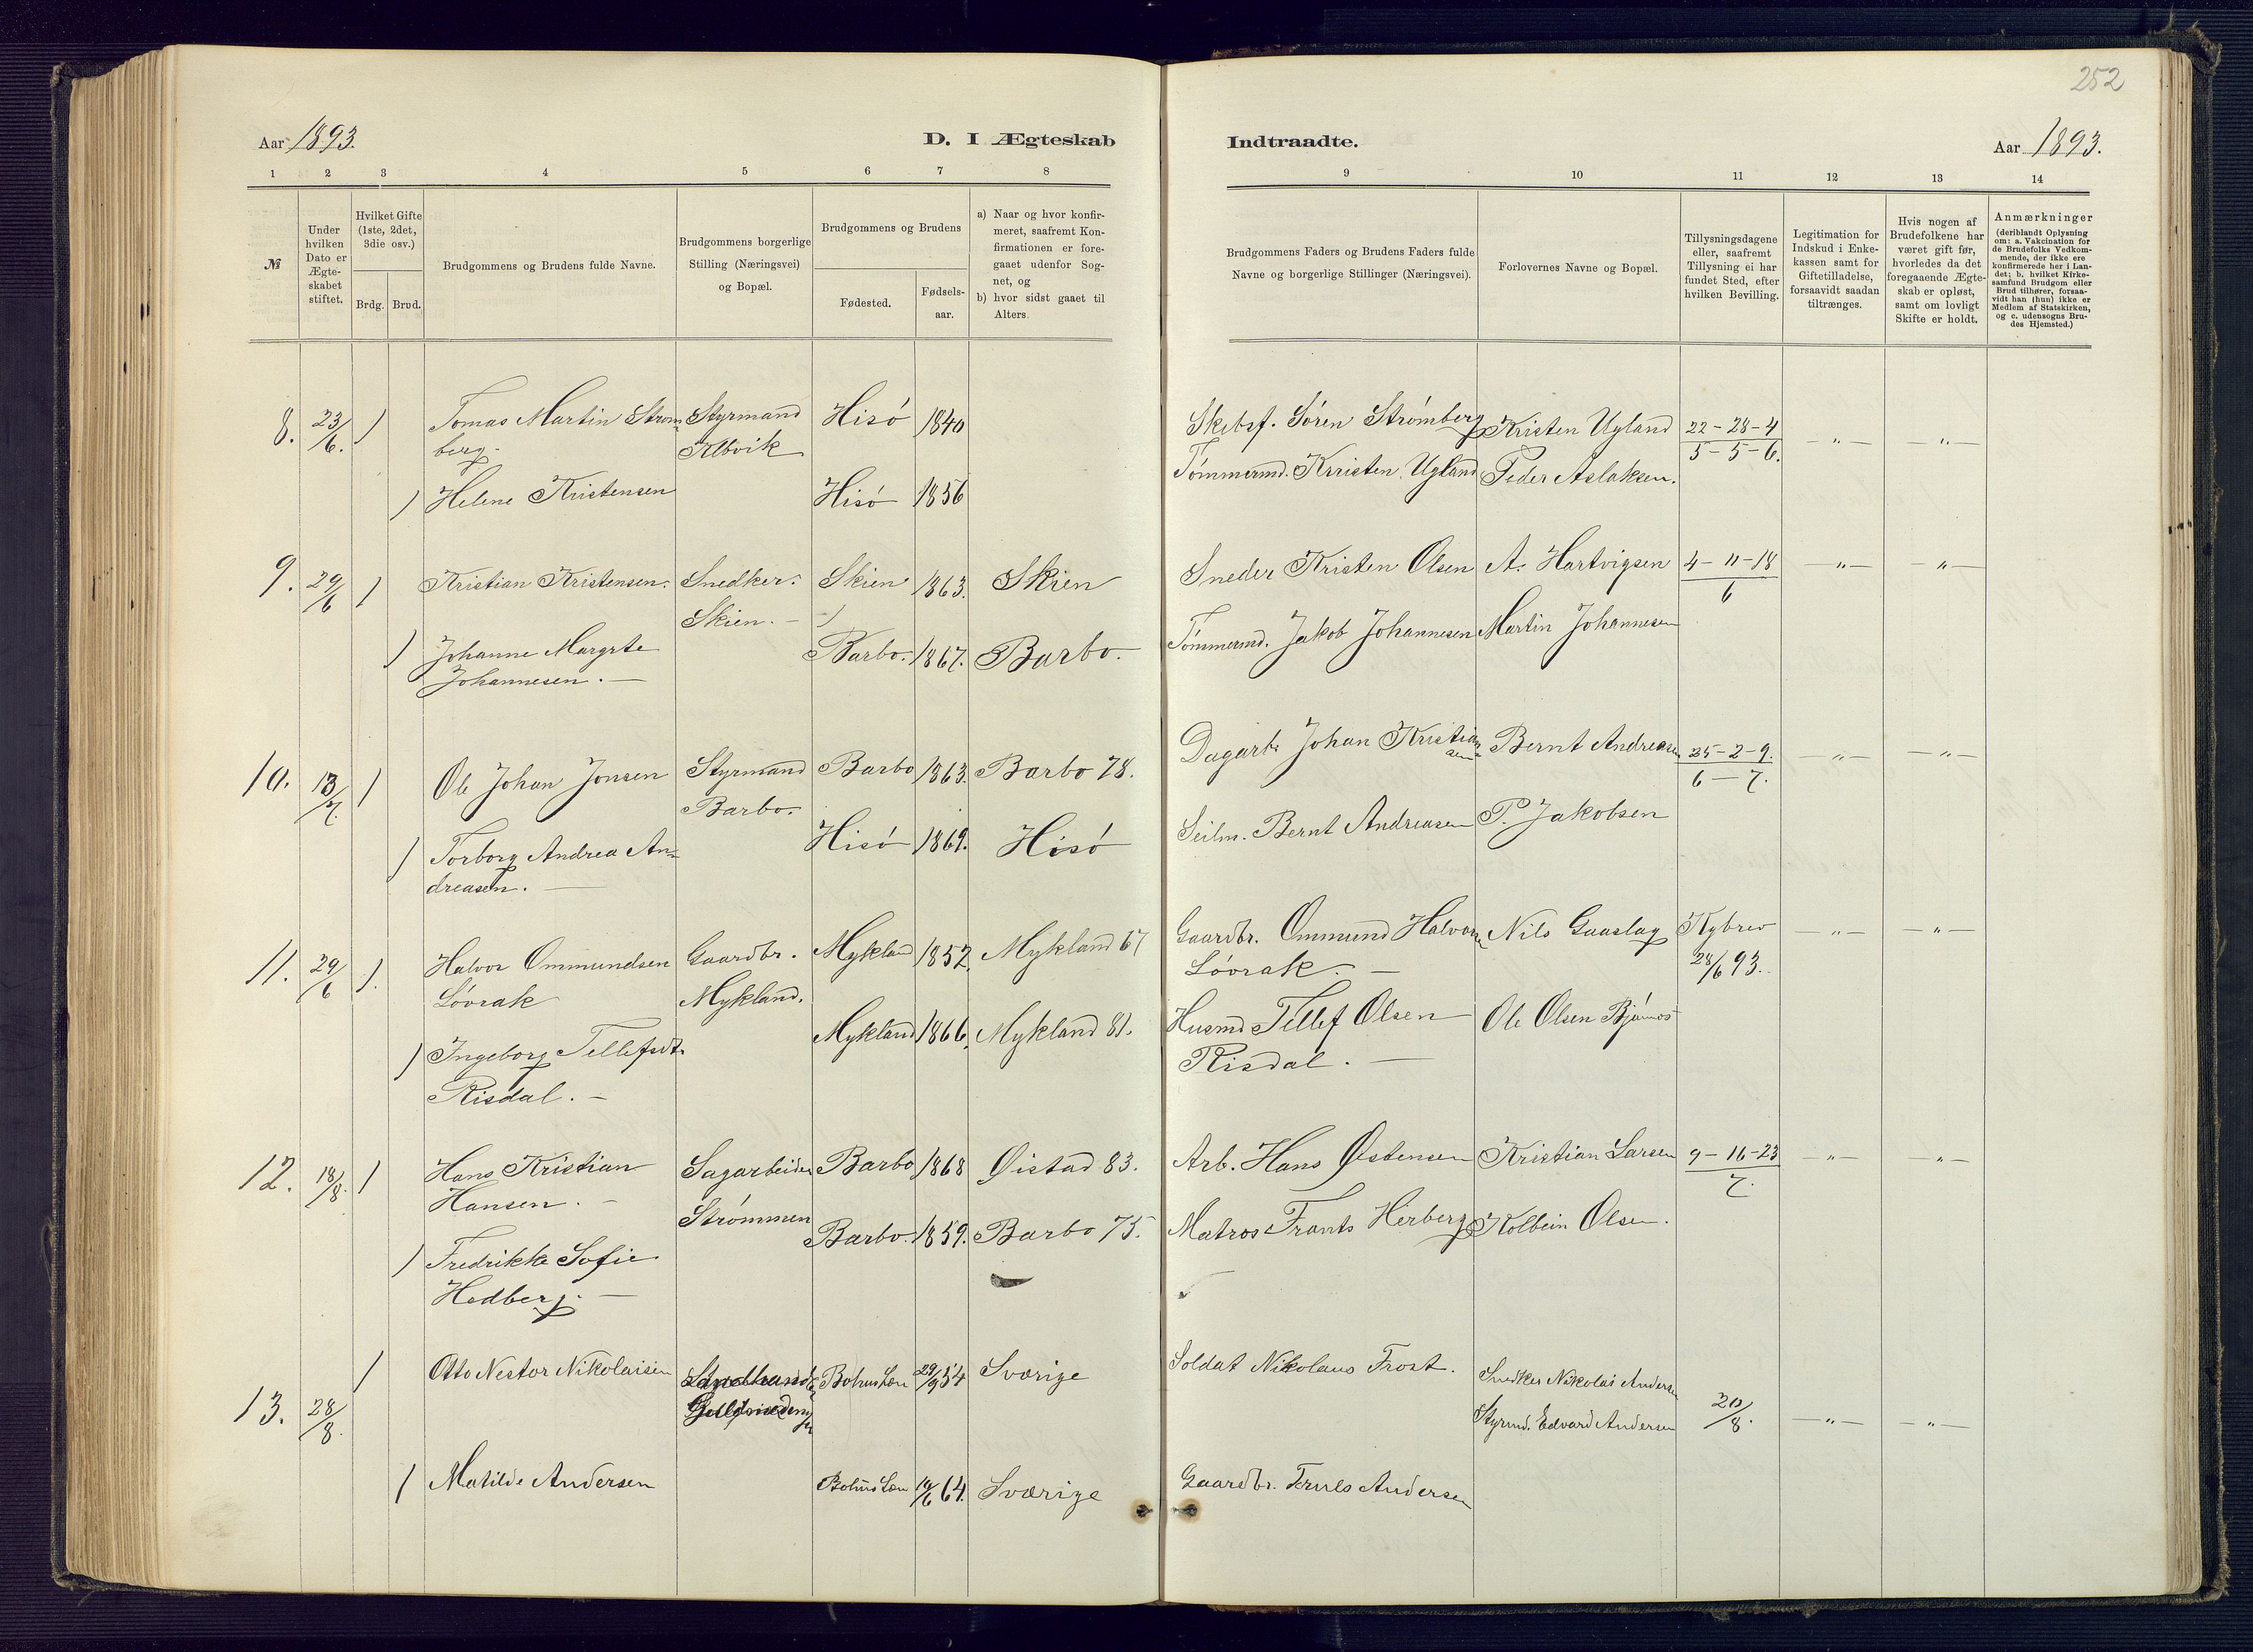 252
Aar 1893.
D. I Ægteskab
Indtraadte.
Aar 1893.
1 2 3 4 5 6 7 8
9 10 11 12 13 14
№
Under
hvilken
Dato er
Ægte-
skabet
stiftet.
Hvilket Gifte
(1ste, 2det,
3die osv.)
Brdg. Brud.
Brudgommens og Brudens fulde Navne.
Brudgommens borgerlige
Stilling (Næringsvei)
og Bopæl.
Brudgommens og Brudens
Fødested.
Fødsels-
aar.
a) Naar og hvor konfir-
meret, saafremt Kon-
firmationen er fore-
gaaet udenfor Sog-
net, og
b) hvor sidst gaaet til
Alters.
Brudgommens Faders og Brudens Faders fulde
Navne og borgerlige Stillinger (Næringsvei).
Forlovernes Navne og Bopæl.
Tillysningsdagene
eller, saafremt
Tillysning ei har
fundet Sted, efter
hvilken Bevilling.
Legitimation for
Indskud i Enke-
kassen samt for
Giftetilladelse,
forsaavidt saadan
tiltrænges.
Hvis nogen af
Brudefolkene har
været gift før,
hvorledes da det
foregaaende Ægte-
skab er opløst,
samt om lovligt
Skifte er holdt.
Anmærkninger
(deriblandt Oplysning
om: a. Vakcination for
de Brudefolks Vedkom-
mende, der ikke ere
konfirmerede her i Lan-
det; b. hvilket Kirke-
samfund Brudgom eller
Brud tilhører, forsaa-
vidt han (hun) ikke er
Medlem af Statskirken,
og c. udensogns Bru-
des Hjemsted.)
8. 23/6. 1 Tomas Martin Strøm- Styrmand Hisö 1840 Skibsf. Sören Strömberg Kristen Ugland 22-28-4 —"— —"—
berg. Kolbvik 5-5-6.
1 Helene Kristensen Hisö 1856 Tömmermd. Kristen Ugland Peder Aslaksen.
9. 29/6 1 Kristian Kristensen. Snedker. Skien 1863. Skien Sneder Kristen Olsen A. Hartvigsen 4-11-18 —"— —"—
Skien. — 6
1 Johanne Margrte Barbo. 1867. Barbo. Tömmermd. Jakob Johannesen Martin Johannesen
Johannesen. —
10. 13/7. 1 Ole Johan Jonsen Styrmand Barbo 1863. Barbo 78. Dagarb. Johan Kristian- Bernt Andreasen 25-2-9. —"— —"—
Barbo. sen 6-7.
1 Torborg Andrea An- Hisö 1869. Hisö Seilm. Bernt Andreasen P. Jakobsen
dreasen. —
11. 29/6 1. Halvor Ommundsen Gaardbr. Mykland 1852. Mykland 67 Gaardbr. Ommund Halvorsen Nils Gaaslag Kgbrev —"— —"—
Lövrak Mykland. Lövrak. — 28/6 93.
1 Ingeborg Tellefsdt. Mykland 1866. Mykland 81. Husmd Tellef Olsen Ole Olsen
Risdal. — Risdal. —
12. 18/8. 1 Hans Kristian Sagarbeider Barbo 1868 Øistad 83. Arb. Hans Østensen Kristian Larsen 9-16-23 —"— —"—
Hansen. — Strömmen 7.
1 Fredrikke Sofie Barbo. 1859. Barbo 75. Matros Frants Herberg Kolbein Olsen.
Hedberg. —
13. 28/8. 1 Otto Nestor Nikolaisen Bohus Len 29/9 54 Sværige Soldat Nikolaus Frost. Snedker Nikolai Andersen 20/8. —"— —"—
Styrmd. Edvard Andersen
1 Matilde Andersen Bohus Len 19/6 64. Sværige Gaardbr. Truls Andersen